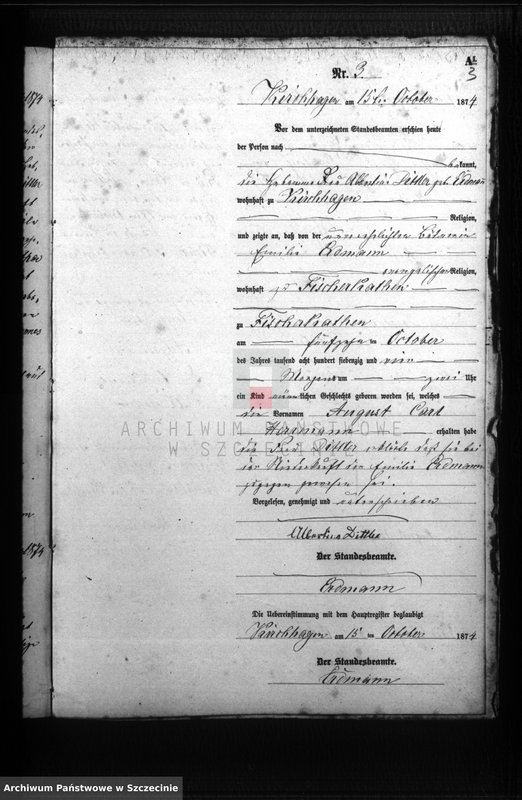 A.
3
Nr. 3
Kirchhagen am 15ten October 1874
Vor dem unterzeichneten Standesbeamten erschien heute
der Person nach
bekannt,
die Hebamme Frau Albertine Dittler geb. Erdmann
wohnhaft zu Kirchhagen
Religion,
und zeigte an, daß von der unverehelichten
Emilie Erdmann
evangelischer Religion,
wohnhaft zu Fischerkathen
zu Fischerkathen
am fünfzehn ten October
des Jahres tausend acht hundert siebenzig und vier
Morgens um zwei Uhr
ein Kind männlichen Geschlechts geboren worden sei, welches
die Vornamen August Carl
Hermann erhalten habe
die Frau Dittler erklärte daß sie bei
der Niederkunft der Emilie Erdmann
zugegen gewesen sei.
Vorgelesen, genehmigt und unterschrieben
Albertine Dittler
Der Standesbeamte.
Erdmann
Die Uebereinstimmung mit dem Hauptregister beglaubigt
Kirchhagen am 15 ten October 1874
Der Standesbeamte.
Erdmann
1874
1874
ARCHIWUM PAŃSTWOWE
W SZCZECINIE
Archiwum Państwowe w Szczecinie